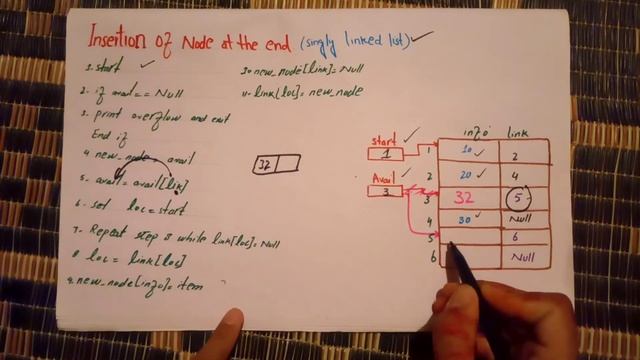 Insertion of Node at the end (singly linked list)
1. start
2. if avail == Null
3. print overflow and exit
End if
4. new_node = avail
5. avail = avail[link]
6. set loc = start
7. Repeat step 8 while link[loc] = Null
8 loc = link[loc]
9. new_node[info] = item
10 new_node[link] = Null
11. link[loc] = new_node
32
start
1
Avail
3
info link
1 10 2
2 20 4
3 32 5
4 30 Null
5 6
6 Null